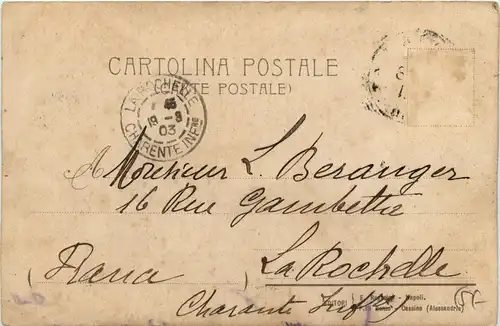 CARTOLINA POSTALE
(CARTE POSTALE)
LA ROCHELLE
19 - 9
03
CHARENTE INFRE
A Monsieur L. Beranger
16 Rue Gambetta
La Rochelle
(                )
Charante Infre
EDITORI E. - Napoli.
- Cassino (Alessandria)
5f-